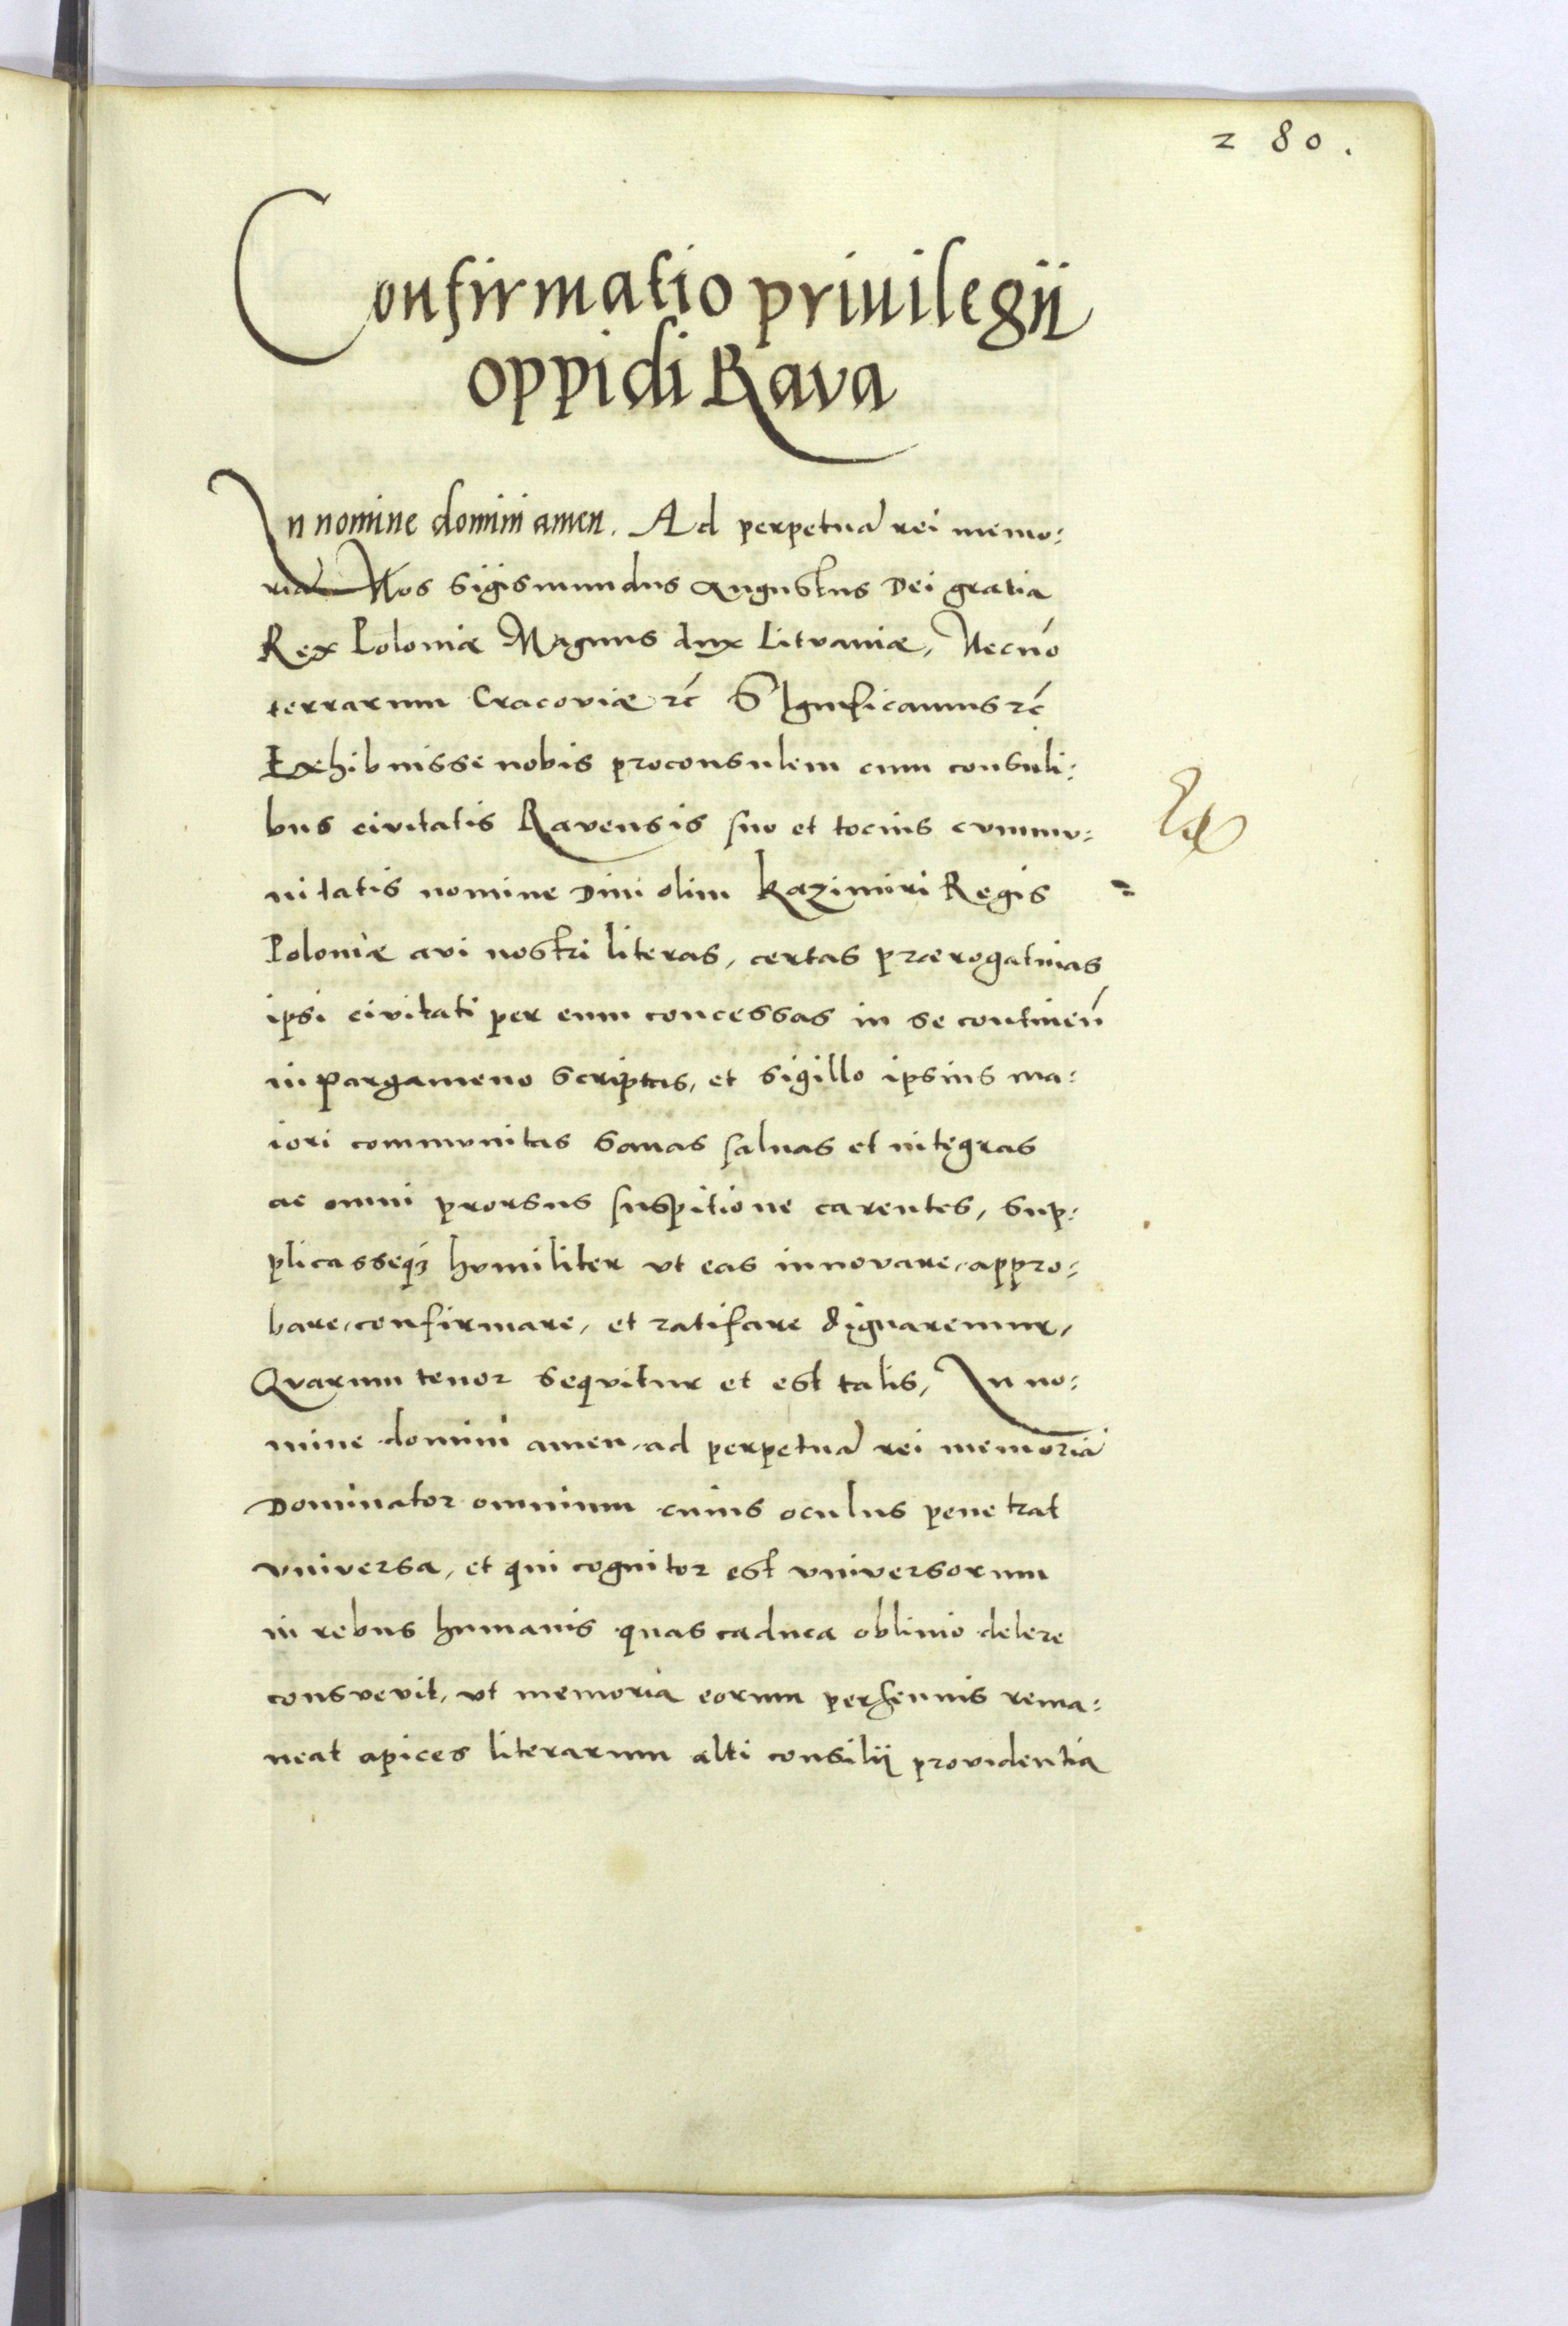 280.
Confirmatio priuilegij
oppidi Rava
In nomine domini amen. Ad perpetuā rei memo:
riā Nos Sigismundus Augustus Dei gratia
Rex Poloniæ Magnus dux Litvaniæ, Necnō
terrarum Cracoviæ ꝛc̄ Significamus ꝛc̄
Exhibuisse nobis proconsulem cum consuli:
bus civitatis Ravensis suo et tocius commv:
nitatis nomine Divi olim Kazimiri Regis
Poloniæ avi nostri literas, certas prærogatiuas
ipsi civitati per eum concessas in se continen̄
in pargameno scriptas, et sigillo ipsius ma:
iori commvnitas sanas saluas et integras
ac omni prorsus suspitione carentes, sup:
plicasseqꝫ hvmiliter vt eas innovare, appro:
bare, confirmare, et ratifare dignaremur,
Qvarum tenor seqvitur et est talis, In no:
mine domini amen, ad perpetuā rei memoriā
Dominator omnium cuius oculus penetrat
vniversa, et qui cognitor est vniversorum
in rebus humanis quas caduca obliuio delere
consvevit, vt memoria eorum perhennis rema:
neat apices literarum alti consilij providentia